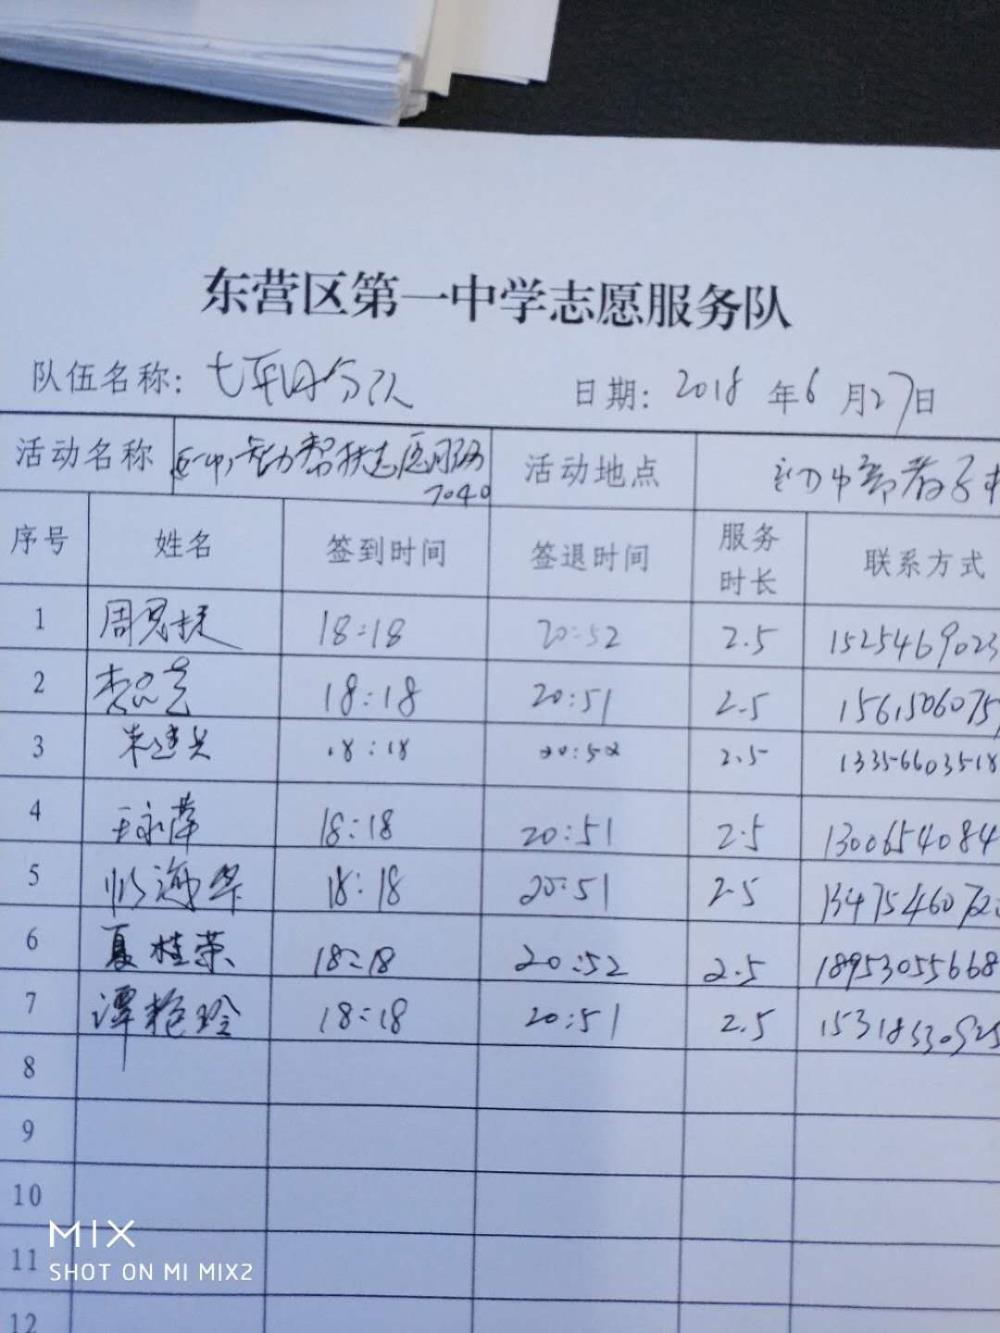 东营区第一中学志愿服务队
队伍名称: 七年四分队 日期: 2018 年 6 月 27 日
活动名称 7040 活动地点
序号 姓名 签到时间 签退时间 服务时长 联系方式
1 周 18:18 20:52 2.5 1525469023
2 李 18:18 20:51 2.5 1561506075
3 朱建兴 18:18 20:52 2.5 13356603518
4 王永萍 18:18 20:51 2.5 1300654084
5 海华 18:18 20:51 2.5 1347546072
6 夏桂荣 18:18 20:52 2.5 18953055668
7 谭艳玲 18:18 20:51 2.5 1531853
8
9
10
11
12
MIX
SHOT ON MI MIX2